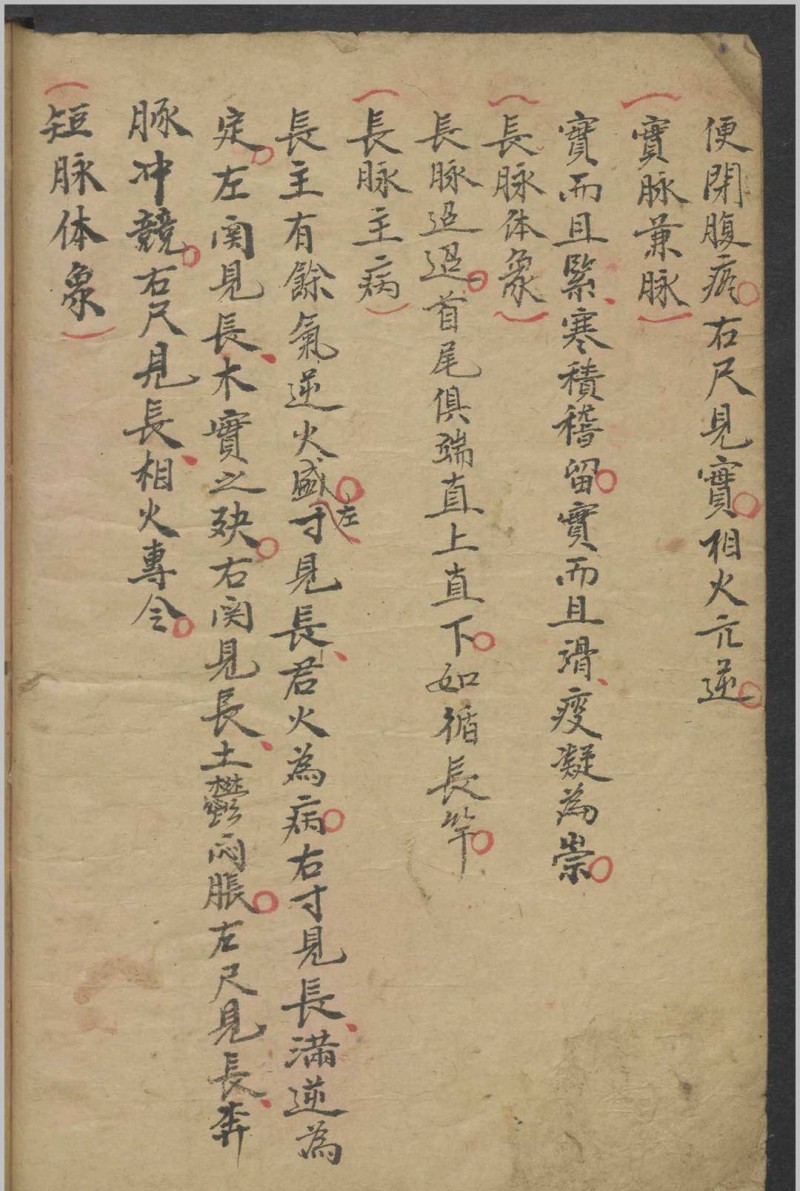 便閉腹疼右尺見實相火亢逆
實脉兼脉
實而且緊寒積稽留實而且滑痰凝為祟
長脉体象
長脉迢迢首尾俱端直上直下如循長竿
長脉主病
長主有餘氣逆火盛左寸見長君火為病右寸見長滿逆為
定左関見長木實之殃右関見長土鬱悶脹左尺見長奔
豚冲競右尺見長相火專令
短脉体象